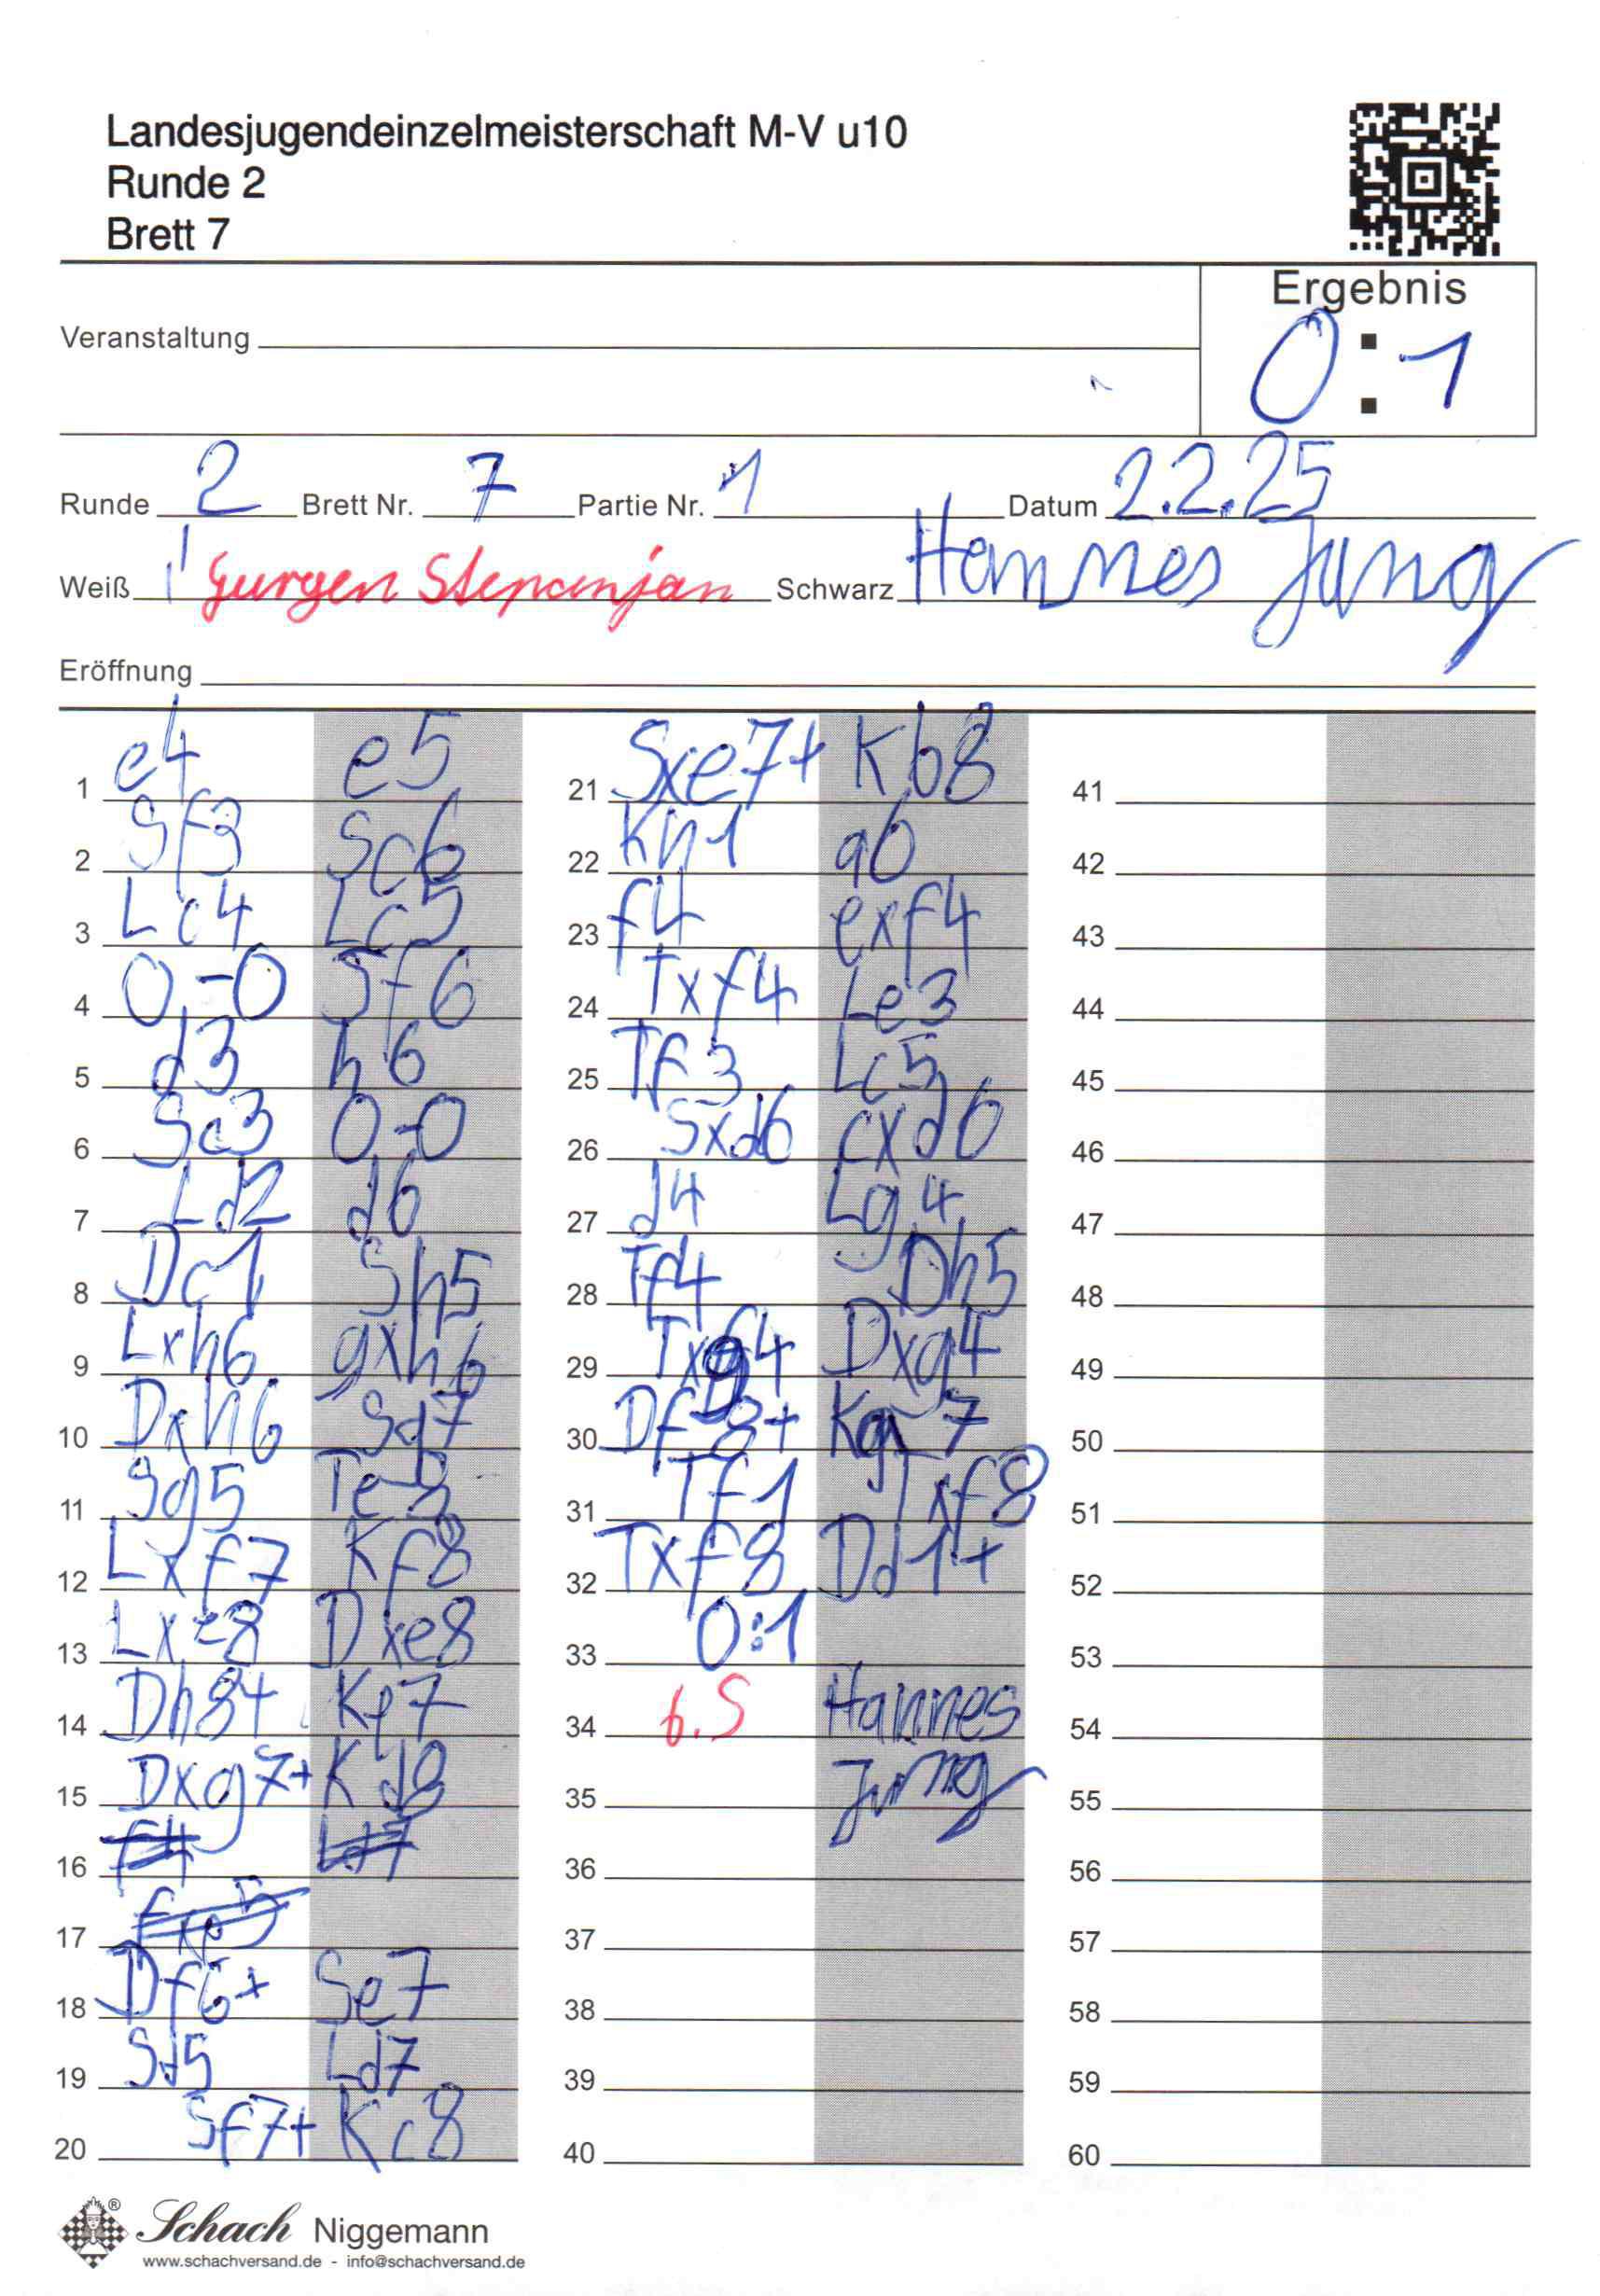 Landesjugendeinzelmeisterschaft M-V u10
Runde 2
Brett 7
Ergebnis
0:1
Veranstaltung
Runde 2 Brett Nr. 7 Partie Nr. 1 Datum 2.2.25
Weiß Gurgen Stepanjan Schwarz Hannes Jung
Eröffnung
1 e4 e5
2 Sf3 Sc6
3 Lc4 Lc5
4 0-0 Sf6
5 d3 h6
6 Sc3 0-0
7 Ld2 d6
8 Dc1 Sh5
9 Lxh6 gxh6
10 Dxh6 Sg7
11 Sg5 Te8
12 Lxf7 Kf8
13 Lxe8 Dxe8
14 Dh8+ Ke7
15 Dxg7+ Kd8
16 f4 Ld7
17 fxe5
18 Df6+ Se7
19 Sd5 Ld7
20 Sf7+ Kc8
21 Sxe7+ Kb8
22 Kh1 a6
23 f4 exf4
24 Txf4 Le3
25 Tf3 Lc5
26 Sxd6 cxd6
27 d4 Lg4
28 Tf4 Dh5
29 Txg4 Dxg4
30 Df8+ Kg7
31 Tf1 Txf8
32 Txf8 Dd1+
33 0:1
34 G.S Hannes
35 Jung
36
37
38
39
40
41
42
43
44
45
46
47
48
49
50
51
52
53
54
55
56
57
58
59
60
Schach Niggemann
www.schachversand.de - info@schachversand.de